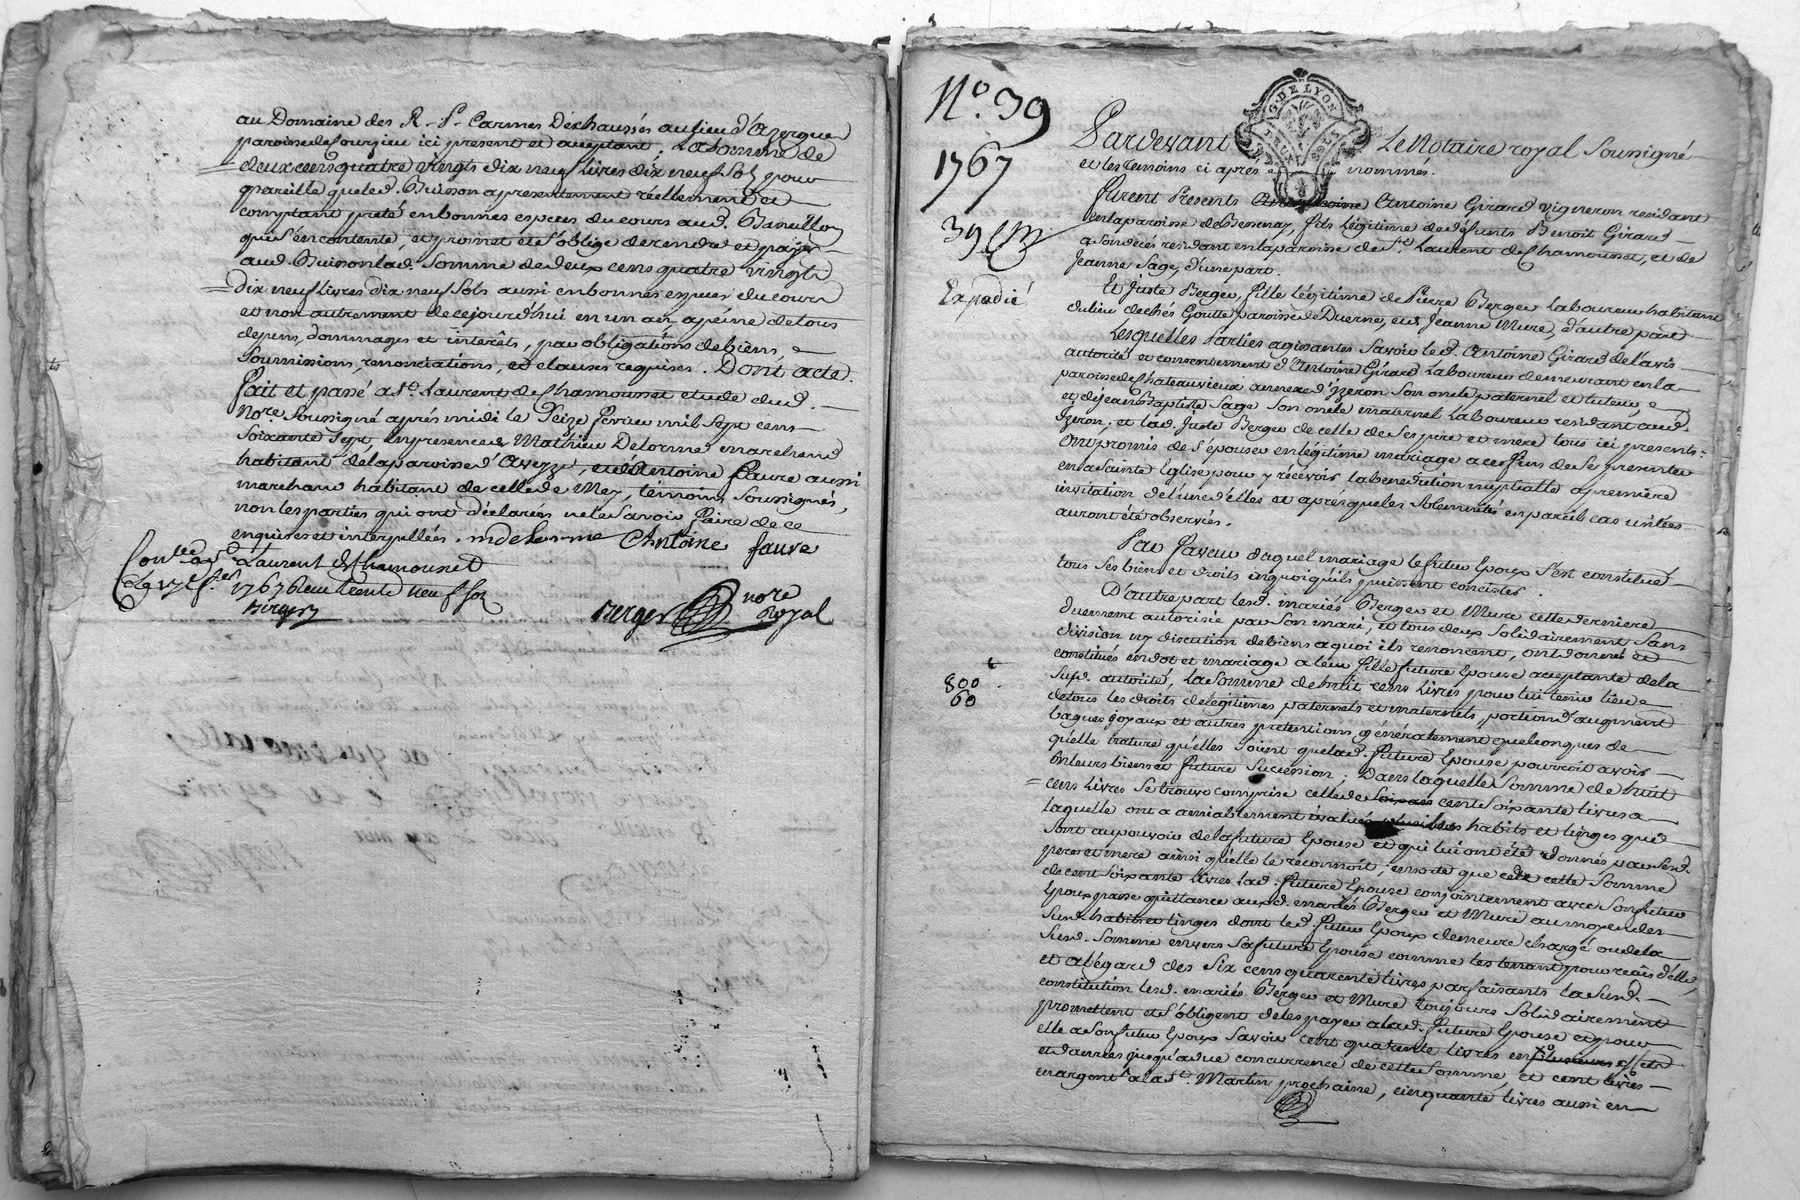 au Domaine des R. P. Carmes Dechaussés au lieu d'Azergue
paroisse de Sourzieu ici present et aceptant, La Somme de
deux cens quatre vingts dix neuf livres dix neuf sols pour
pareille que led. Buisson a presentement réellement et
comptant preté en bonnes especes du cours aud. Baruillon
qui s'en contente, et promet et s'oblige de rendre et payer
aud. Buisson lad. Somme de deux cens quatre vingts
dix neuf livres dix neuf sols aussi en bonnes especes du cours
et non autrement de ce jourd'hui en un an a peine de tous
depens, dommages et intérêts, par obligations de biens,
Soumissions, renonciations, et clauses requises. Dont acte.
fait et passé a St. Laurent de Chamousset etude dud.
Nore. Soussigné après midi le Seize fevrier mil Sept cens
Soixante Sept, en presence de Mathieu Delorme marchand
habitant de la paroisse d'Aveyze, et d'Antoine Faure aussi
marchand habitant de celle de Mey, témoins Soussignés,
non les parties qui ont déclarées ne le Savoir faire de ce
enquises et interpellées. mdelorme Antoine faure
Conlle. a St. Laurent de Chamousset
Le 17e fer. 1767 Reçu trente neuf sols
Berger
Berger nore Royal
No. 39
1767
39
Expedié
G. DE LYON
DEUX SOLS
Pardevant Le Notaire royal Soussigné
et les temoins ci après nommés.
furent Presents Antoine Girard Vigneron residant
en la paroisse de Bessenay, fils Légitime de défunts Benoit Girard
a son deces residant en la paroisse de St. Laurent de Chamousset, et de
Jeanne Sage, d'une part.
Et Juste Berger, fille Légitime de Pierre Berger Laboureur habitant
du lieu de chés Goutte paroisse de Duerne, et de Jeanne Mure, d'autre part
Lesquelles Parties agissantes Savoir led. Antoine Girard de l'avis
autorité et consentement d'Antoine Girard Laboureur demeurant en la
paroisse de Chateauvieux annexe d'yzeron Son oncle paternel et tuteur,
et de Jean Baptiste Sage Son oncle maternel Laboureur residant aud.
Izeron; et lad. Juste Berger de celle de Ses pere et mere tous ici presents.
Ont promis de S'épouser en légitime mariage a ces fins de Se presenter
en n. Sainte Eglise pour y récevoir la benediction nuptialle a premiere
invitation de l'une d'elles et après que les Solemnités en pareil cas usitées
auront été observées.
En faveur duquel mariage le futur Epoux S'est constitué
tous Ses biens et droits en quoi qu'ils puissent concister.
D'autre part lesd. mariés Berger et Mure cette derniere
duement autorisée par Son mari, et tous deux Solidairement Sans
division ny discution de biens a quoi ils renoncent, ont donnés et
constitués en dot et mariage a leur fille future Epouse aceptante de la
800
60
Susd. autorité, La Somme de huit cens Livres pour lui tenir lieu
de tous les droits de légitimes paternels et maternels, portion d'augment
bagues joyaux et autres pretentions généralement quelconques de
quelle nature qu'elles Soient que lad. future Epouse pourroit avoir
en leurs biens et future Succession; Dans laquelle Somme de huit
cens Livres Se trouve comprise celle de cent Soixante livres a
laquelle ont a amiablement évalués habits et linges qui
Sont au pouvoir de la future Epouse et qui lui ont été donnés par Sesd.
pere et mere ainsi qu'elle le reconnoit; ensorte que de cette Somme
de cent Soixante Livres lad. future Epouse conjointement avec Son futur
Epoux passe quittance auxd. mariés Berger et Mure au moyen des
Susd. habits et linges dont led. futur Epoux demeure chargé ou de la
Susd. Somme envers Sa future Epouse comme les tenant pour reçûs d'elle,
et a l'égard des Six cens quarente livres parfaisants la Susd.
constitution lesd. mariés Berger et Mure toujours Solidairement
promettent et S'obligent de les payer a lad. future Epouse et pour
elle a Son futur Epoux Savoir cent quarente livres en plusieurs effets
et danrées jusqu'a due concurrence de cette Somme, et cent livres
en argent a la St. Martin prochaine, cinquante livres aussi en